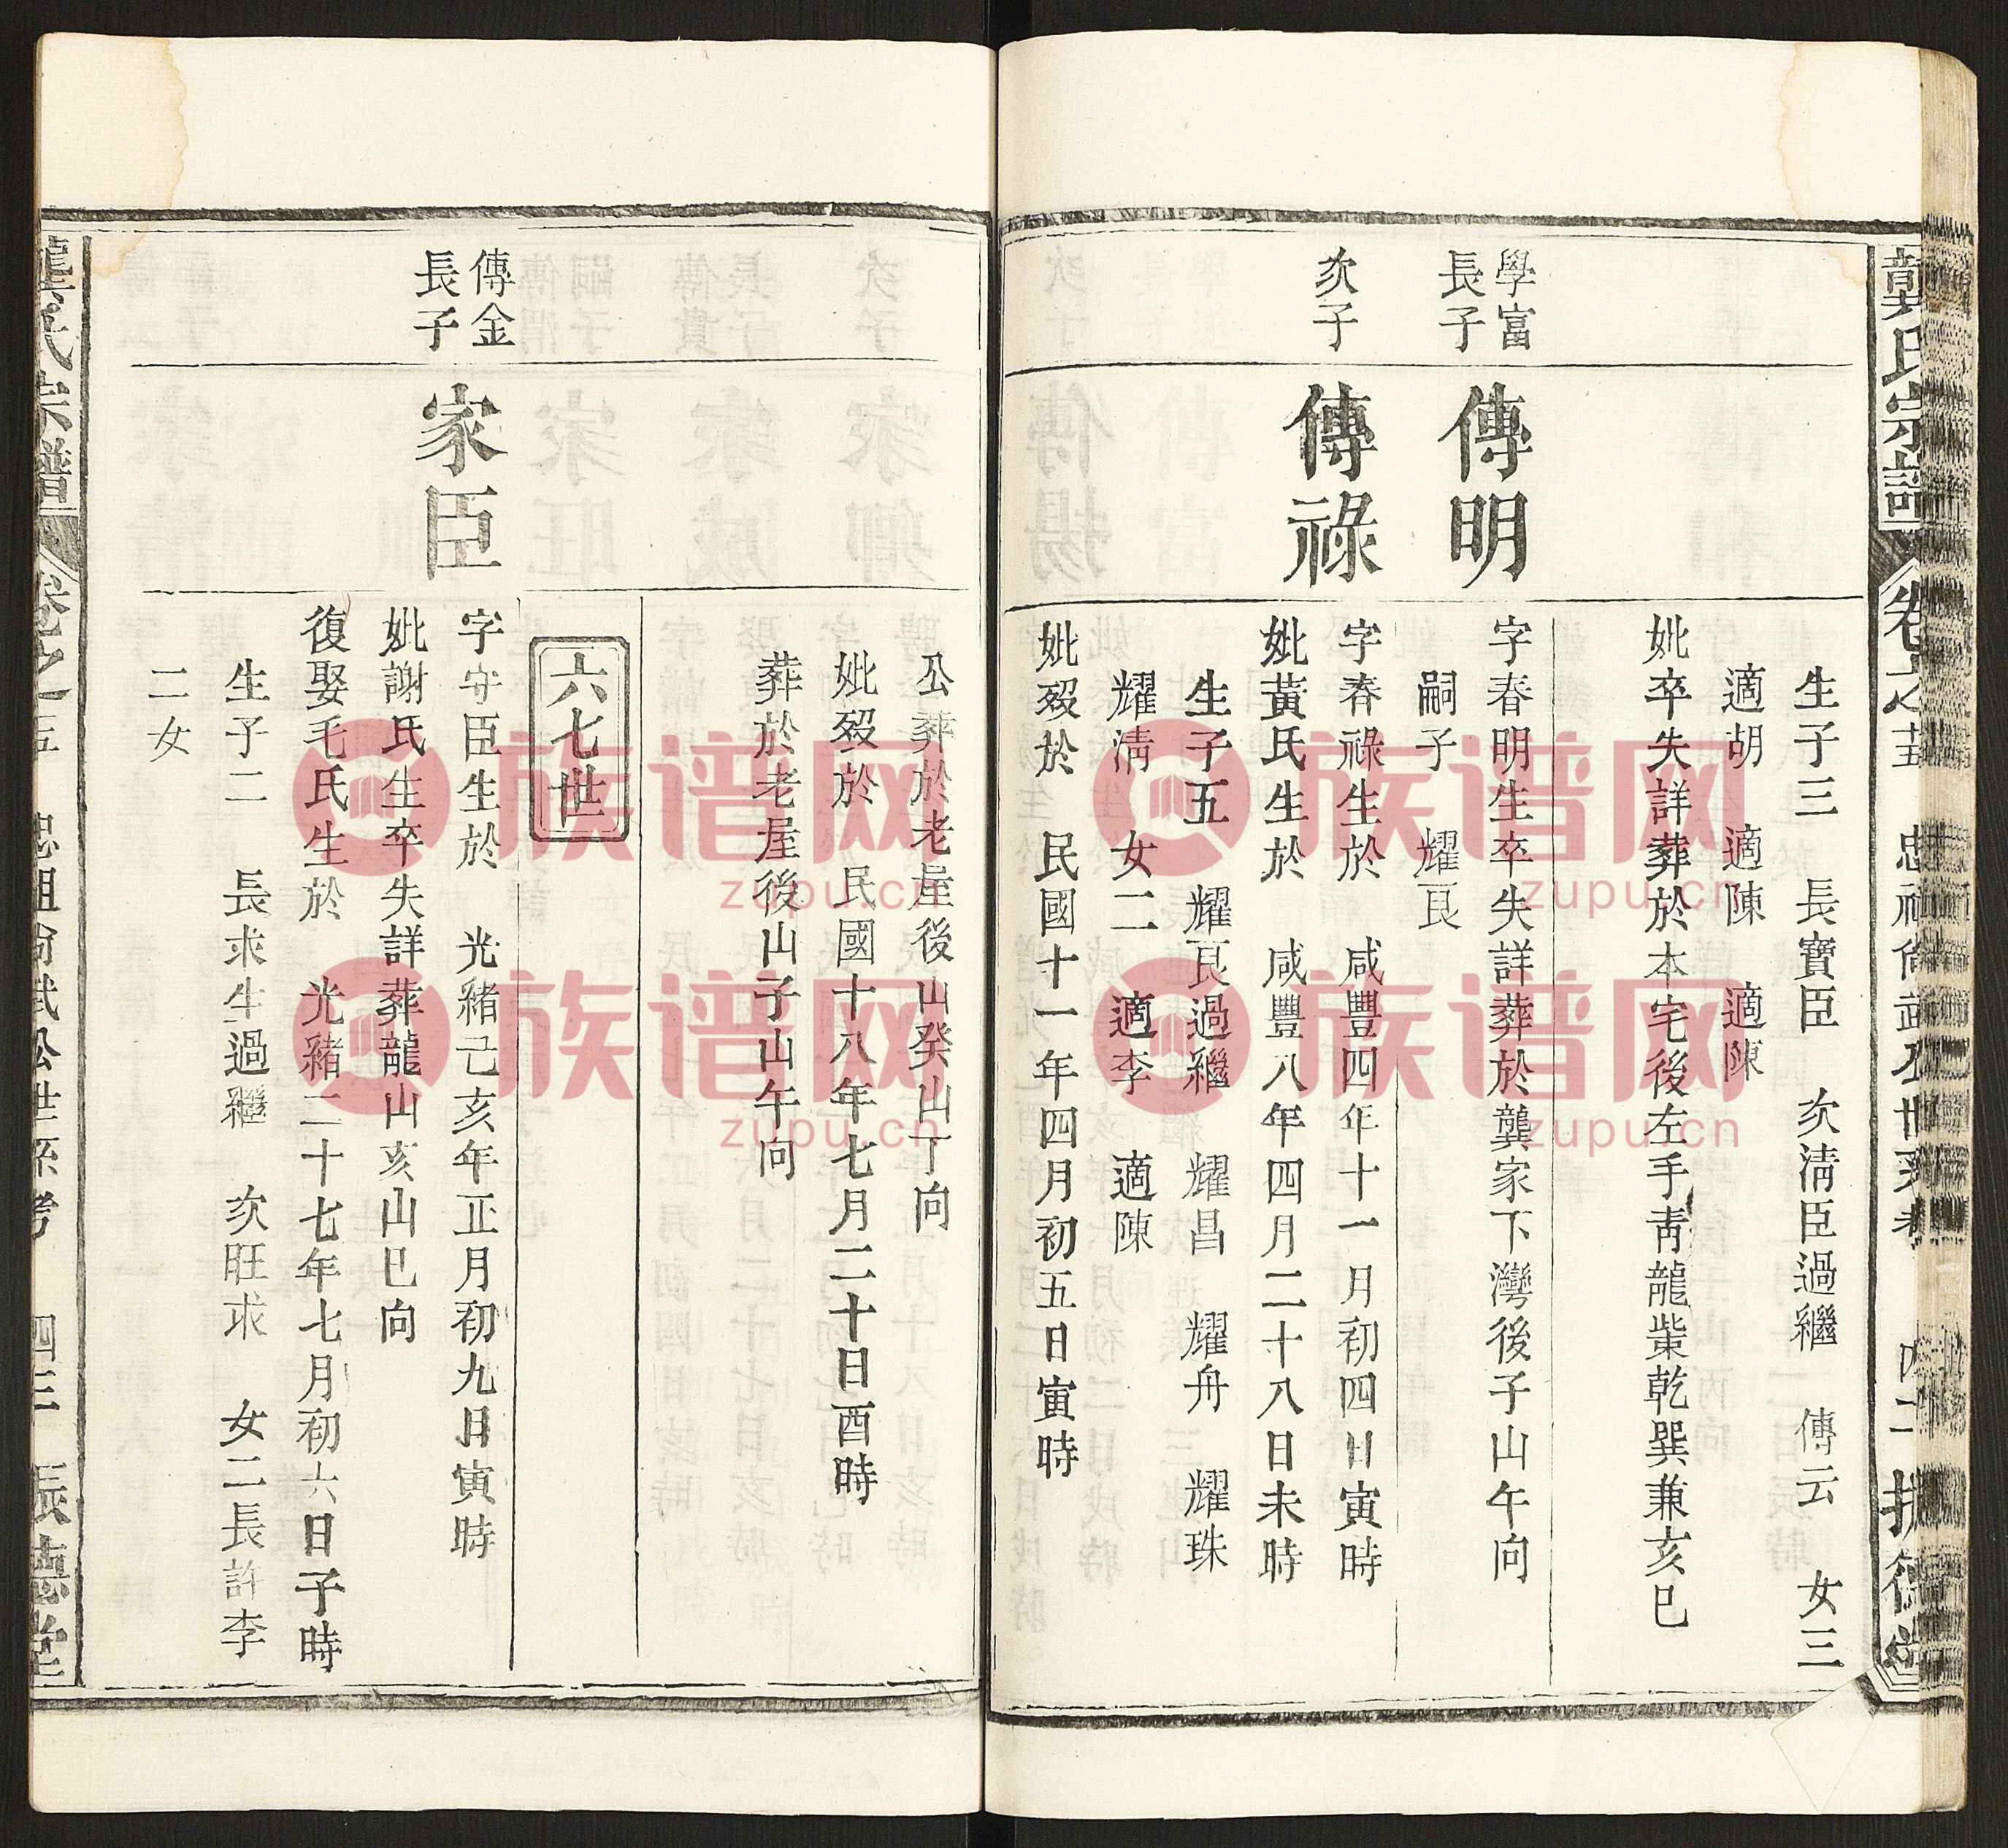 龔氏宗譜
卷之五
忠祖尙武公世系考
四二
振德堂
生子三　長寶臣　次淸臣過繼　傳云　女三
適胡　適陳　適陳
妣卒失詳葬於本宅後左手靑龍嘴乾巽兼亥巳
學富
長子
傳明
字春明生卒失詳葬於龔家下灣後子山午向
嗣子　耀良
次子
傳祿
字春祿生於　咸豐四年十一月初四日寅時
妣黃氏生於　咸豐八年四月二十八日未時
生子五　耀良過繼　耀昌　耀舟　耀珠
耀淸　女二　適李　適陳
妣歿於　民國十一年四月初五日寅時
公葬於老屋後山癸山丁向
妣歿於　民國十八年七月二十日酉時
葬於老屋後山子山午向
六七世
傳金
長子
家臣
字守臣生於　光緒己亥年正月初九日寅時
妣謝氏生卒失詳葬龍山亥山巳向
復娶毛氏生於　光緒二十七年七月初六日子時
生子二　長求生過繼　次旺求　女二長許李
二女
龔氏宗譜
卷之五
忠祖尙武公世系考
四三
振德堂
族谱网
zupu.cn
族谱网
zupu.cn
族谱网
zupu.cn
族谱网
zupu.cn